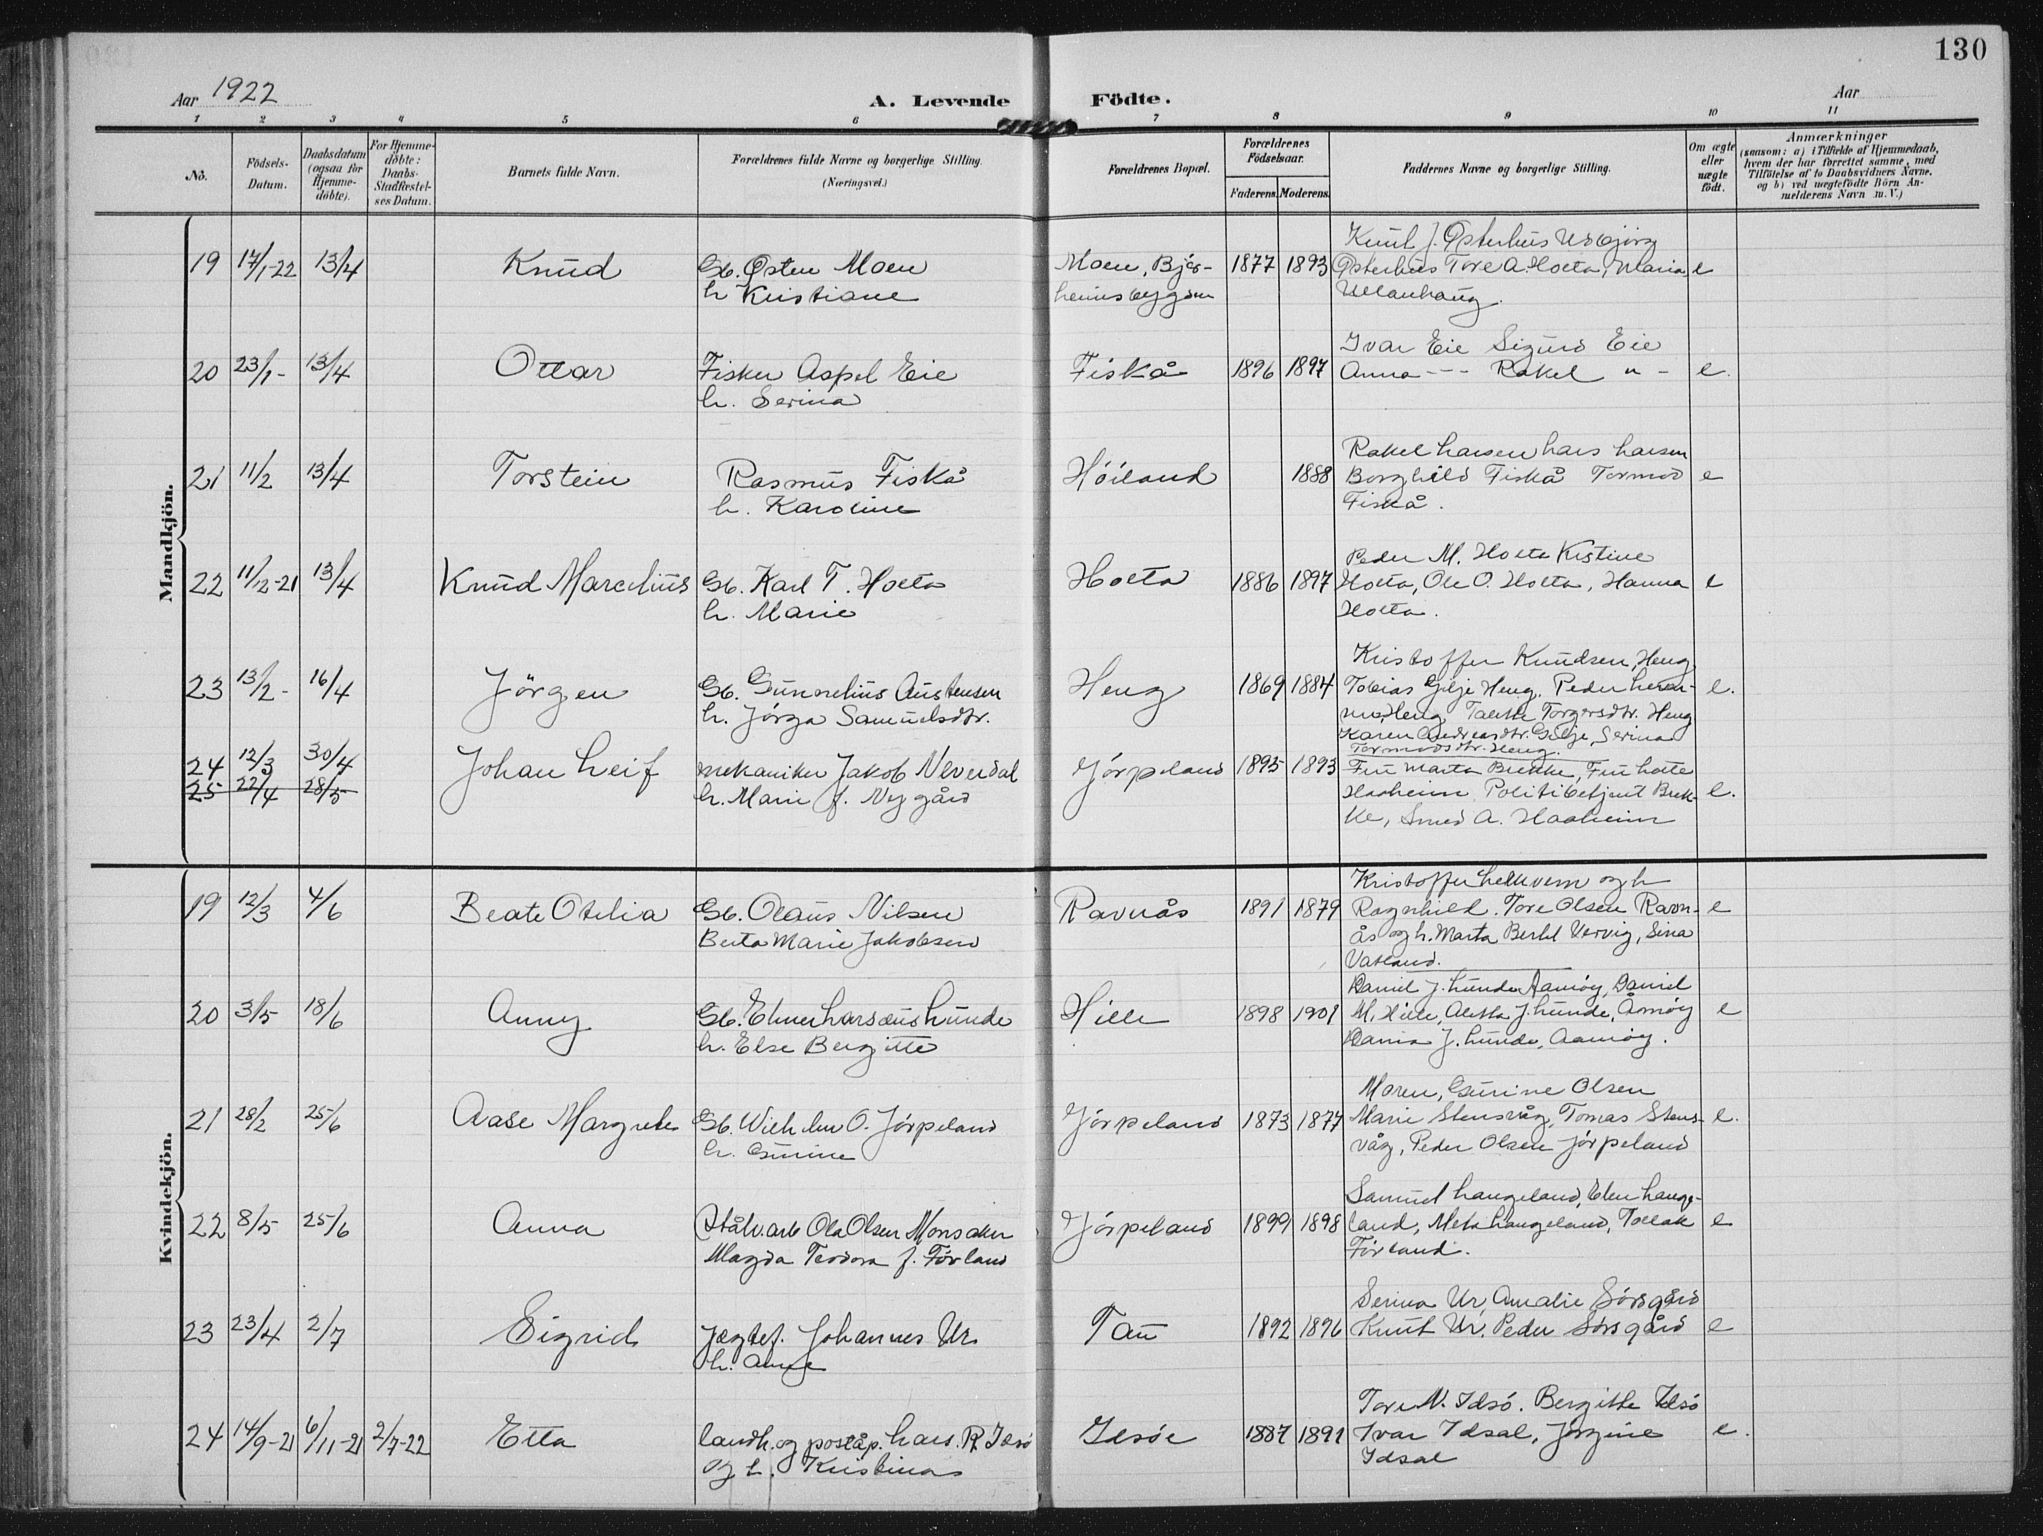 130
Aar 1922
A. Levende Födte.
Aar
1 2 3 4 5 6 7 8 9 10 11
No.
Födsels-Datum.
Daabsdatum (ogsaa for Hjemme-döbte).
For Hjemme-döbte: Daabs-Stadfæstel-ses Datum.
Barnets fulde Navn.
Forældrenes fulde Navne og borgerlige Stilling. (Næringsvei.)
Forældrenes Bopæl.
Forældrenes Födselsaar.
Faderens. Moderens.
Faddernes Navne og borgerlige Stilling.
Om ægte eller uægte födt.
Anmærkninger
(saasom: a) i Tilfælde af Hjemmedaab,
hvem der har forrettet samme, med
Tilföielse af to Daabsvidners Navne.
og b) ved uægtefödte Börn An-
melderens Navn m. V.)
Mandkjön.
Knut J. Østerhus
19 17/1-22 13/4 Knud Gb. Østen Moen Moen, Bjør- 1877 1893 Østerhus Tore A. Holta, Maria e
h Kristiane heimsbygden Ullanhaug.
Ivar Eie Sigurd Eie
20 23/1- 13/4 Ottar Fisker Aspel Eie Fiskå 1896 1897 Anna --- Rakel " - e.
h. Serina
Rakel Larsen Lars Larsen
21 11/2 13/4 Torstein Rasmus Fiskå Höiland 1888 Borghild Fiskå Tormod e
h. Karoline Fiskå.
Peder M. Holta Kistine
22 11/12-21 13/4 Knud Marcelius Gb. Karl T. Holta Holta 1886 1897 Holta, Ole O. Holta, Hanna e
h. Marie Holta.
Kristoffer Knudsen, Heng
23 13/2- 16/4 Jörgen Gb. Gunnelius Austensen Heng 1869 1884 Tobias Gilje Heng. Peder e.
h. Jórga Samuelsdtr. Heng Torgersdtr. Heng
Karen Andreasdtr. Gilje, Serina
Tormodsdtr. Heng.
24 12/3 30/4 Johan Leif mekaniker Jakob Neverdal Jórpeland 1895 1893 Fru Marta Brekke, Fru Lotte
25 22/4 28/5 h. Marie f. Nygård Haaheim Politibetjent Brek- e.
ke, Smed A. Haaheim
Kvindekjön.
Kristoffer og h
19 12/3 4/6 Beate Otelia Gb. Olaus Nilsen Ravnås 1891 1879 Ragnhild. Tore Olsen Ravn- e
Berta Marie Jakobsen ås og h. Marta Bertel Vervig, Sina
Vatland.
Daniel J. Lunde Aamöy, Daniel
20 3/5 18/6 Anny Gb. Elmer Larsæus Lunde Hille 1898 1901 M. Hille, Aletta J. Lunde, Åmöy e
h. Else Bergitte J. Lunde, Aamöy.
Maren, Gurine Olsen
21 28/2 25/6 Aase Margrete Gb. Wilhelm O. Jórpeland Jórpeland 1873 1877 Marie Stensvåg, Tomas Stens- e.
h. Gurine våg, Peder Olsen Jórpeland
Samuel Langeland, Elen Lange-
22 8/5 25/6 Anna Stålv.arb Ola Olsen Monsaker Jórpeland 1899 1898 land, Meta Langeland, Tollak e
Magda Teodora f. Förland Förland.
Serina Ur, Amalie Sórsgård
23 23/4 2/7 Sigrid Jægtef. Johannes Ur Tau 1892 1896 Knut Ur, Peder Sórsgård e
h. Anne
Tore N. Idsó. Bergitte Idsó
24 14/9-21 6/11-21 2/7-22 Etta landh. og poståp. Lars R. Idsó Idsóe 1887 1891 Ivar Idsal, Jörgine e.
og h. Kristina Idsal